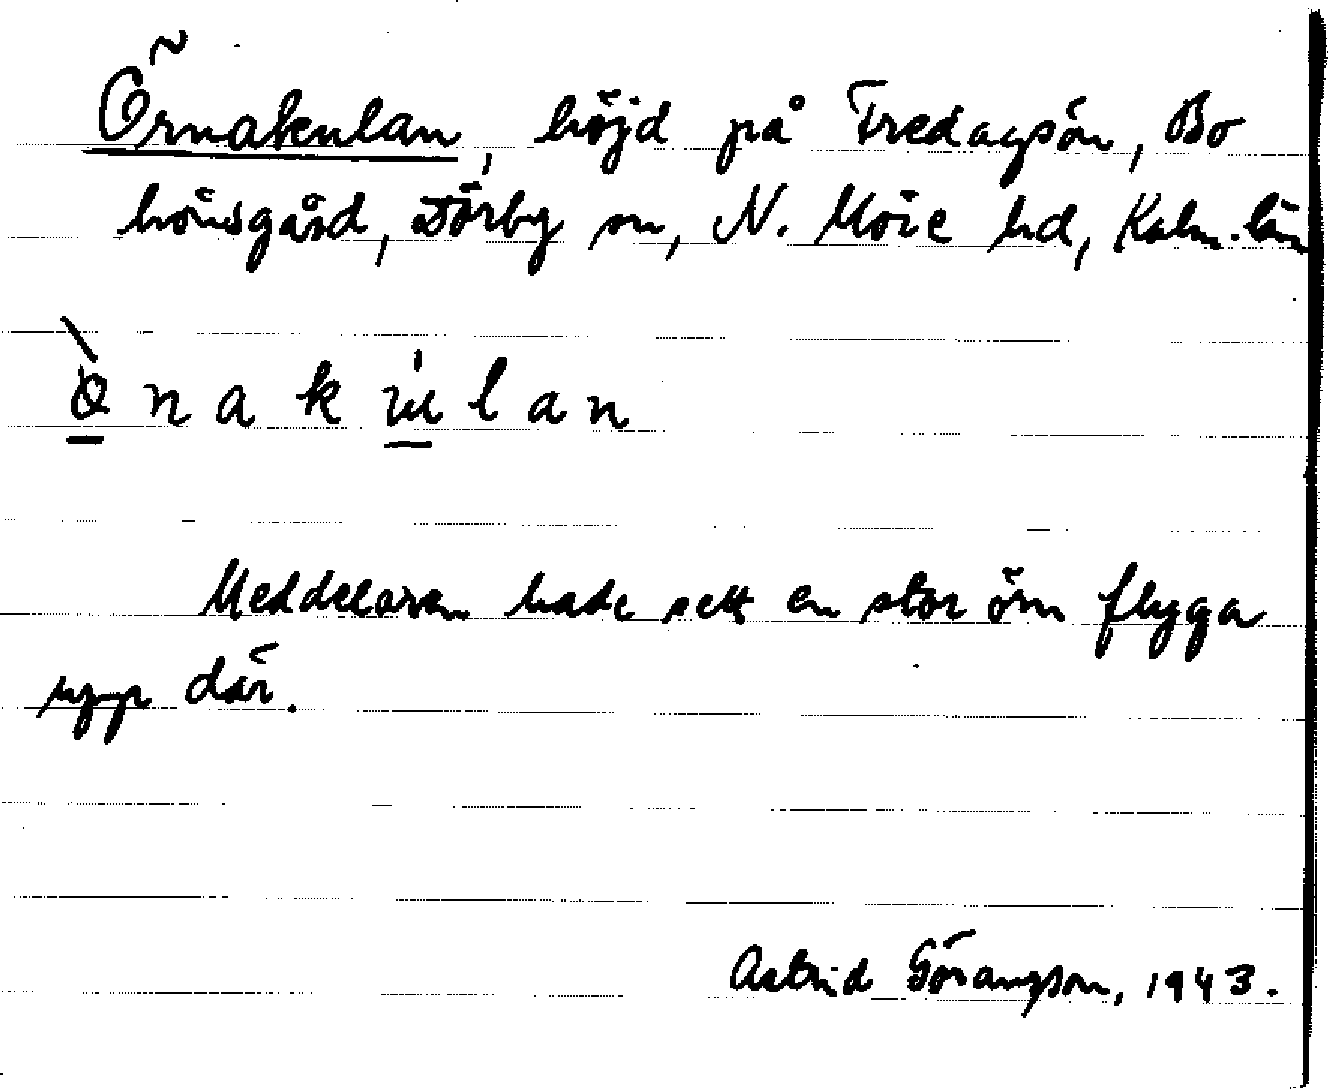 Örnakulan, höjd på Fredagsön, Bo
hönsgård, Dörby sn, N. Möre hd, Kalm. län
nakulan
Meddelaren hade sett en stor örn flyga
upp där.
Astrid Göransson, 1943.